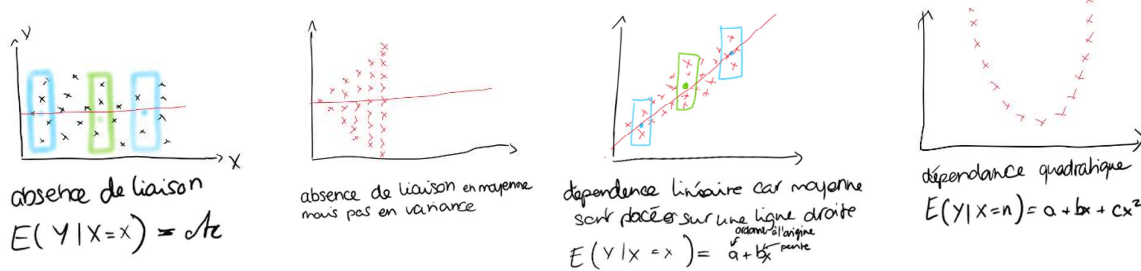 Y
X
absence de liaison
E(Y|X=x) = cte
absence de liaison en moyenne
mais pas en variance
dependence linéaire car moyenne
sont placées sur une ligne droite
E(Y|X=x) = a+bx
ordonné à l'origine
pente
dépendance quadratique
E(Y|X=n) = a+bx+cx²